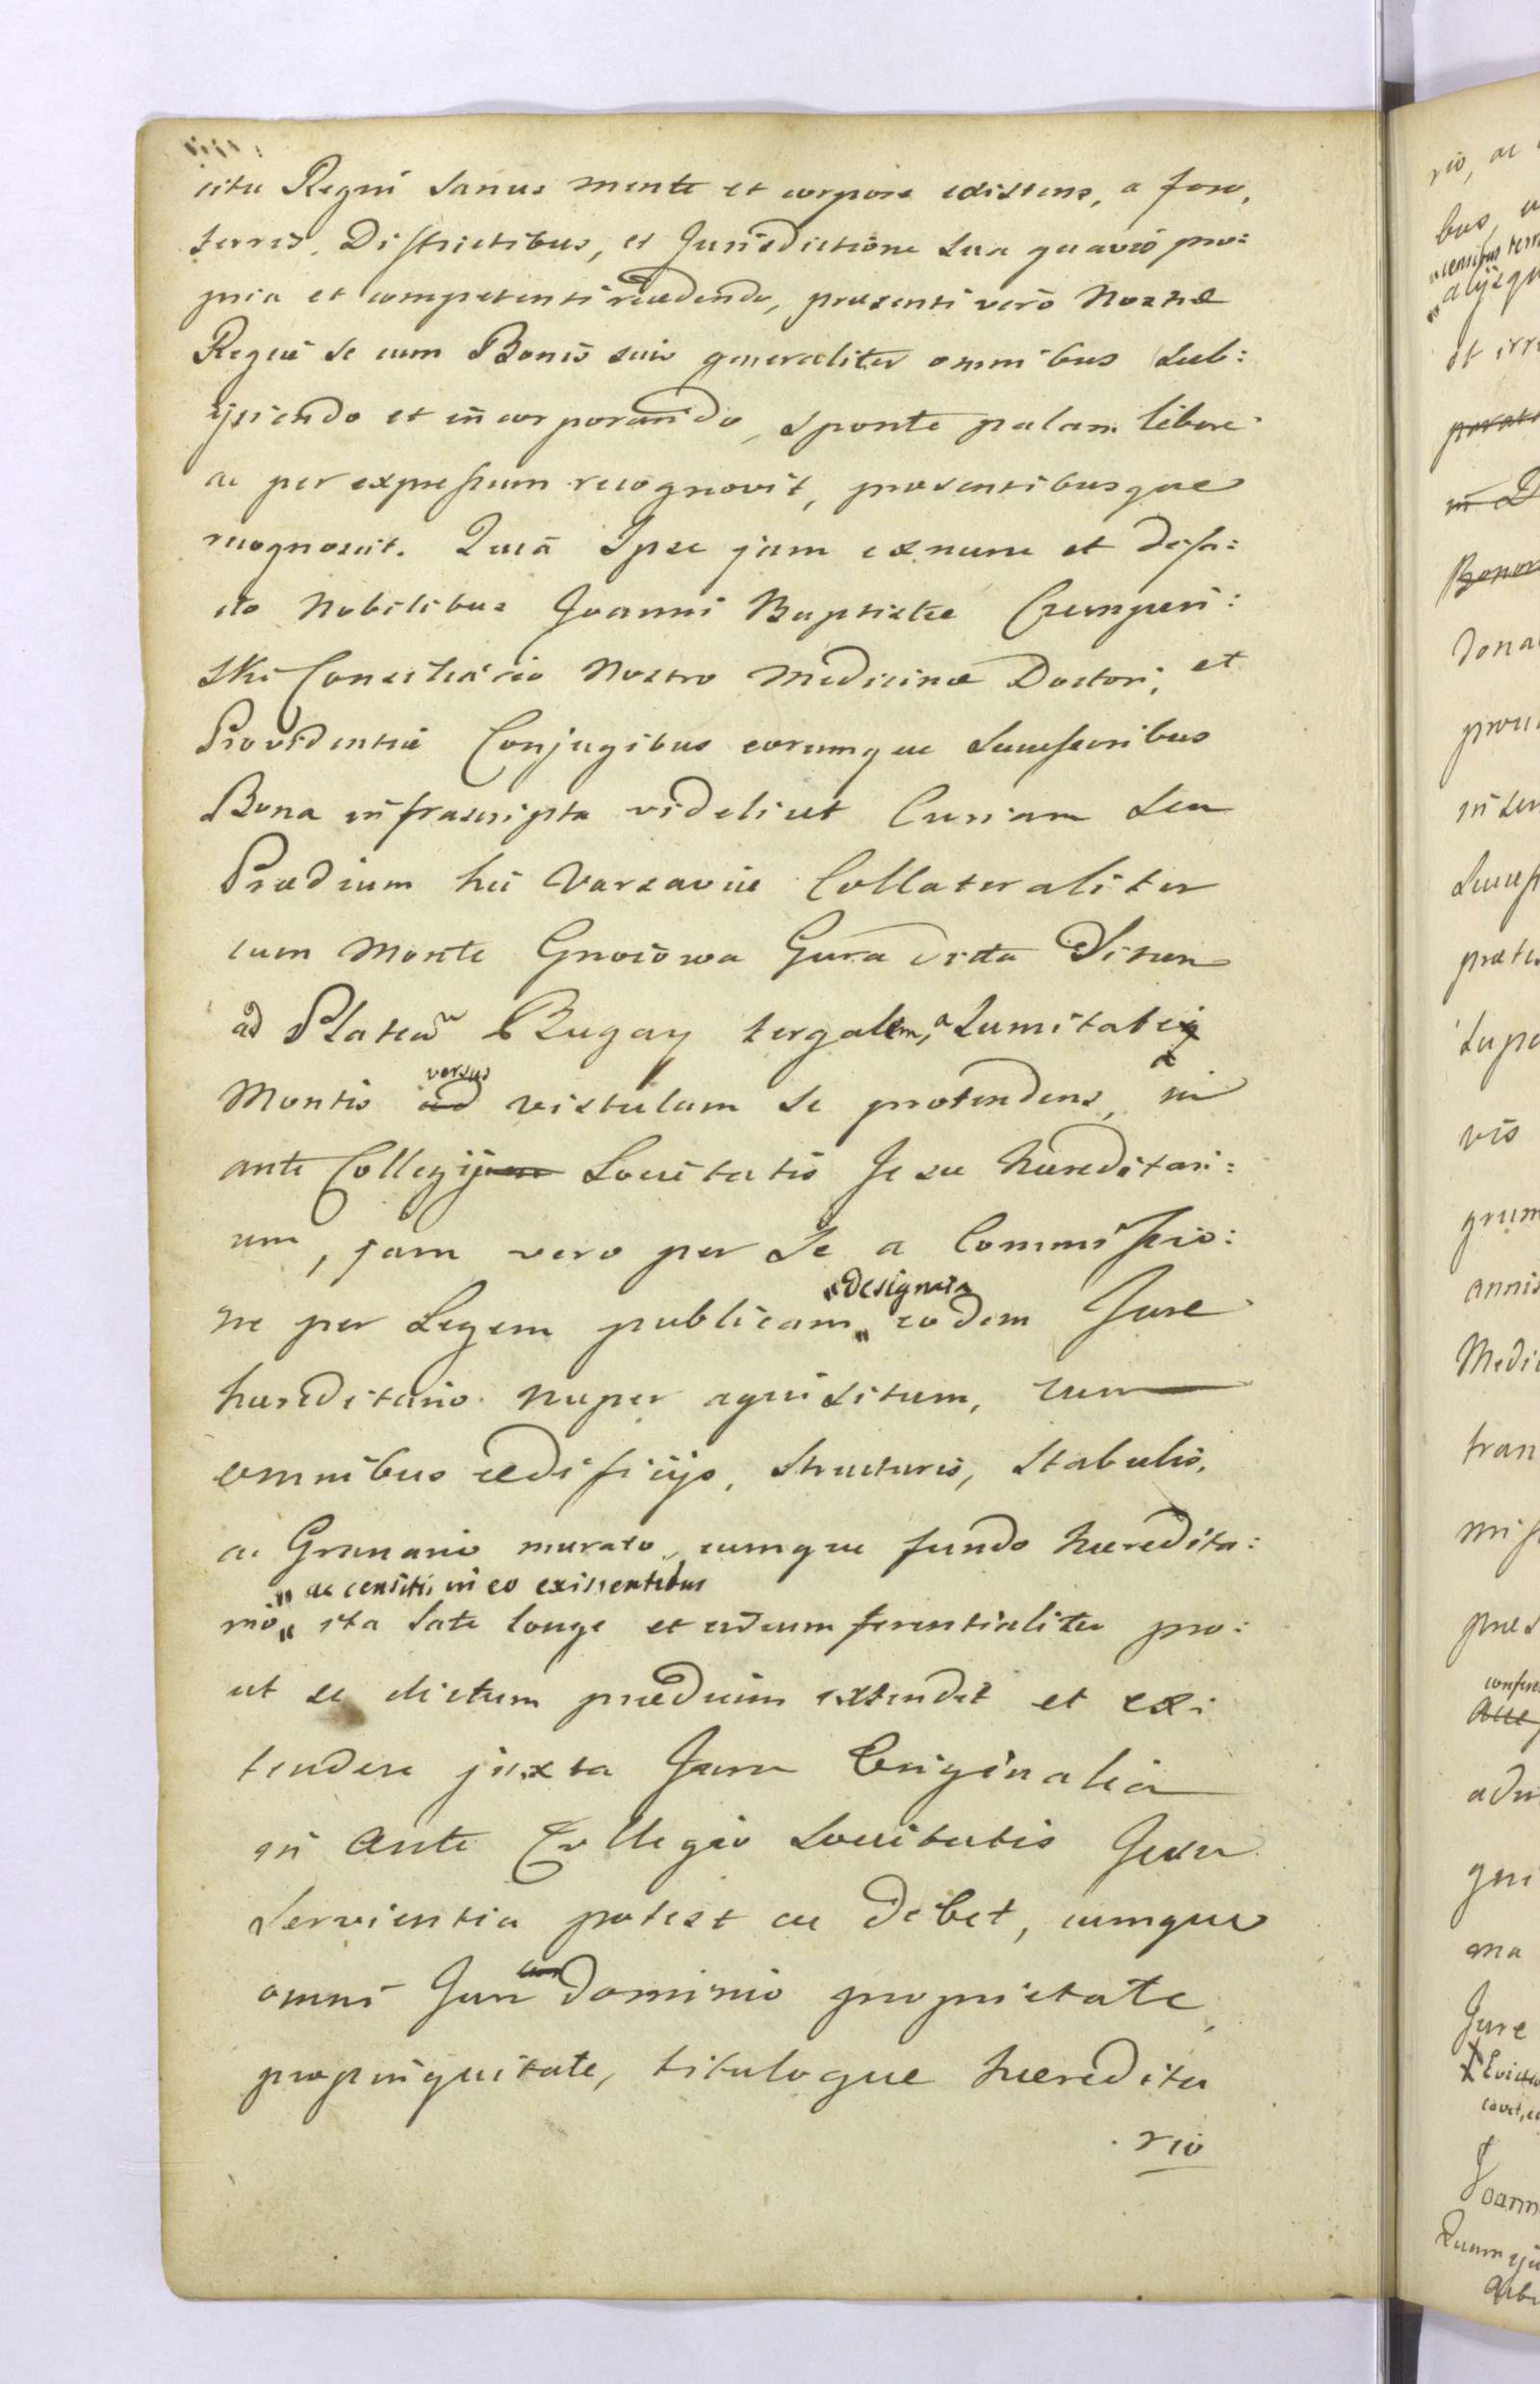 citu Regni Sanus mente et corpore existens, a foro,
terris. Districtibus, et Jurisdictione sua quavis pro:
pria et competenti recedendo, præsenti vero Nostræ
Regiæ se cum Bonis suis generaliter omnibus sub:
ijciendo et incorporando, sponte palam libere
ac per expressum recognovit, præsentibusque
recognoscit. Quia Ipse jam exnunc et defa:
cto Nobilibus Joanni Baptistæ Czempin:
ski Consiliario Nostro Medicinæ Doctori, et
Providentiæ Conjugibus eorumque Successoribus
Bona infrascripta videlicet Curiam seu
Prædium hic Varsaviæ Collateraliter
cum Monte Gnoiowa Gura dicta Situm
ad Plateam Bugay tergalem, a Sumitate
Montis versus vistulam se protendens, in
ante Collegij Societatis Jesu hæreditari:
um, jam vero per se a Commissio:
ne per Legem publicam "designata" eodem Jure
hæreditario nuper aquisitum, cum
omnibus ædificijs, structuris, stabulis,
ac Granario murato, cumque fundo hæredita:
rio " ac censitis in eo existentibus " ita late longe et circumferentialiter pro:
ut se dictum prædium extendit et ex:
tendere juxta Jura Originalia
in Ante Collegio Societatis Jesu
servientia potest ac debet, cumque
omni Jure dominio proprietate,
propinquitate, tituloque hæredita
rio